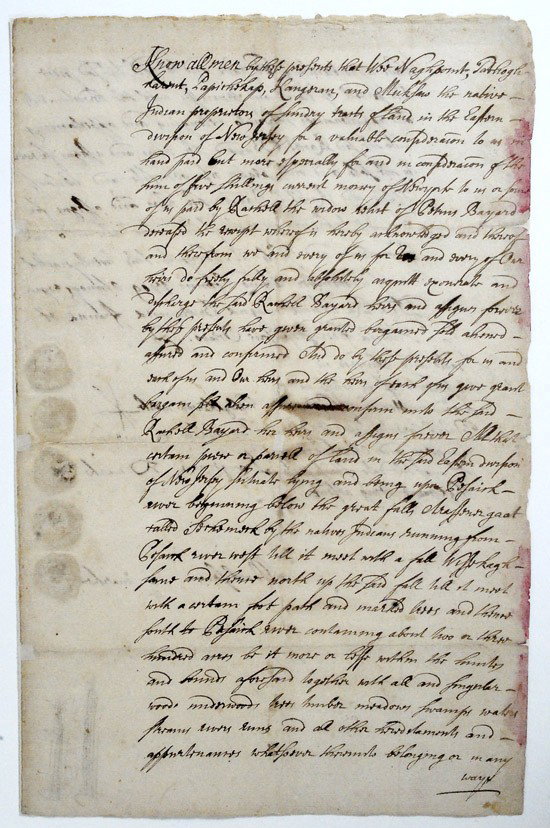 Know all men by these presents that Wee Naghpeent, Tathogh
Karent, Papirikhas, Kangeran, and Mukhaw the native
Indian proprietors of sundry tracts of land in the Eastern
division of New Jersey for a valuable consideracon to us in
hand paid but more especially for and in consideracon of the
sum of five shillings current money of Newyork to us or some
of us paid by Rachell the widow relict of Petrus Bayard
deceased the receipt whereof is hereby acknowledged and thereof
and therefrom we and every of us for us and every of Our
heirs do freely fully and absolutely acquitt exonerate and
discharge the said Rachell Bayard heirs and assignes forever
by these presents have given granted bargained sold aliened
assured and confirmed And do by these presents for us and
each of us and Our heirs and the heirs of each of us give grant
bargain sell alien confirm unto the said
Rachell Bayard her heirs and assigns forever All that
certain piece or parcell of land in the said Eastern division
of New Jersey situate lying and being upon Pesaick
river beginning below the great falls
called by the natives Indians running from
Pesaick river west till it meet with a fall
and thence north up the said fall till it meet
with a certain foot path and marked trees and thence
south to Pesaick river containing about two or three
hundred acres be it more or lesse within the limites
and bounds aforesaid together with all and singuler
woods underwoods trees timber meadows swamps waters
streams rivers runs and all other hereditaments and
appurtenances whatsoever thereunto belonging or in any
ways